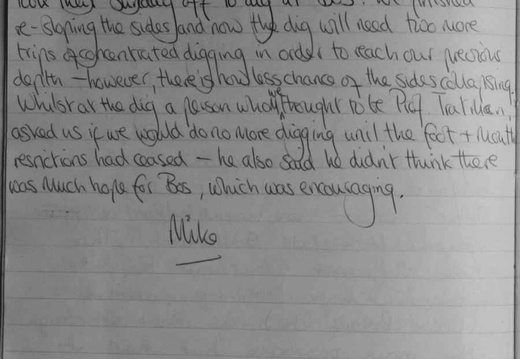 re-sloping the sides, and now the dig will need two more
trips of concentrated digging in order to reach our previous
depth – however, there is now less chance of the sides collapsing.
Whilst at the dig a person whom we thought to be Prof. Tratman,
asked us if we would do no more digging until the foot + mouth
restrictions had ceased – he also said he didn't think there
was much hope for Bos, which was encouraging.
Mike